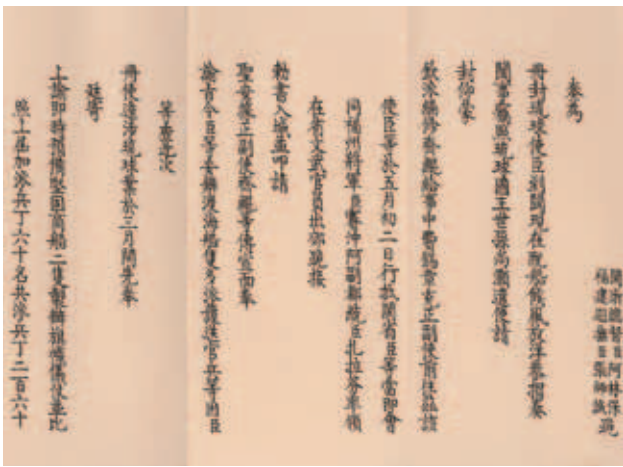 閩浙總督臣阿林保
福建巡撫臣張師誠跪
奏為
冊封琉球使臣到閩現在配船候風放洋恭摺奏
聞事竊照琉球國王世孫尚灝遣使請
封仰蒙
欽派編修齊鯤給事中費錫章充正副使前往茲該
使臣等於五月初二日行抵閩省臣等當即會
同福州將軍臣賽沖阿副都統臣扎拉芬率領
在省文武官員出郊跪接
勅書入城並叩請
聖安據正副使齊鯤等傳宣面奉
諭旨令臣等妥辦渡海船隻多派護送官兵等因臣
等查此次
冊使遠涉琉球業於三月間先奉
廷寄
上諭即將預備堅固商船二隻製辦旗幟儀仗並比
照上屆加添兵丁六十名共添兵丁二百六十